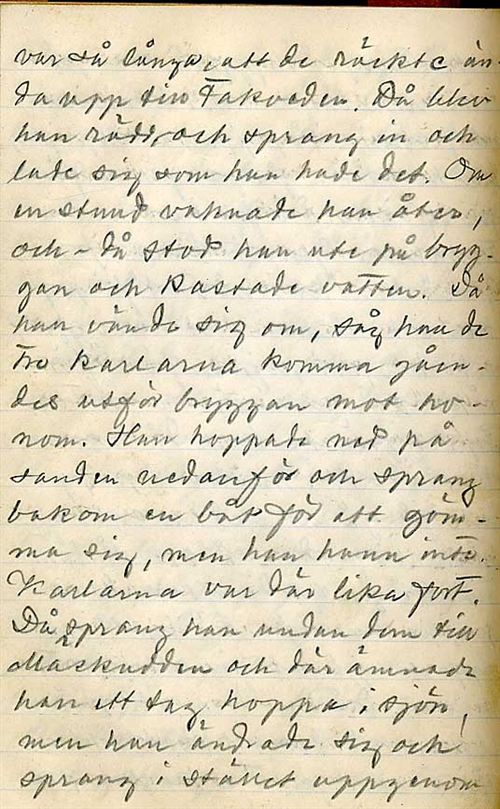 var så långa, att de räckte än-
da upp till Fakveden. Då blev
han rädd, och sprang in och
lade sig som han hade det. Om
en stund vaknade han åter,
och - då stod han ute på bryg-
gan och kastade vatten. Då
han vände sig om, såg han de
tre karlarna komma gåen-
des utför bryggan mot ho-
nom. Han hoppade ned på
sanden nedanför och sprang
bakom en båt för att göm-
ma sig, men han hann inte.
Karlarna var där lika fort.
Då sprang han undan dem till
Maskudden och där ämnade
han ett tag hoppa i sjön,
men han ändrade sig och
sprang i stället uppgenom